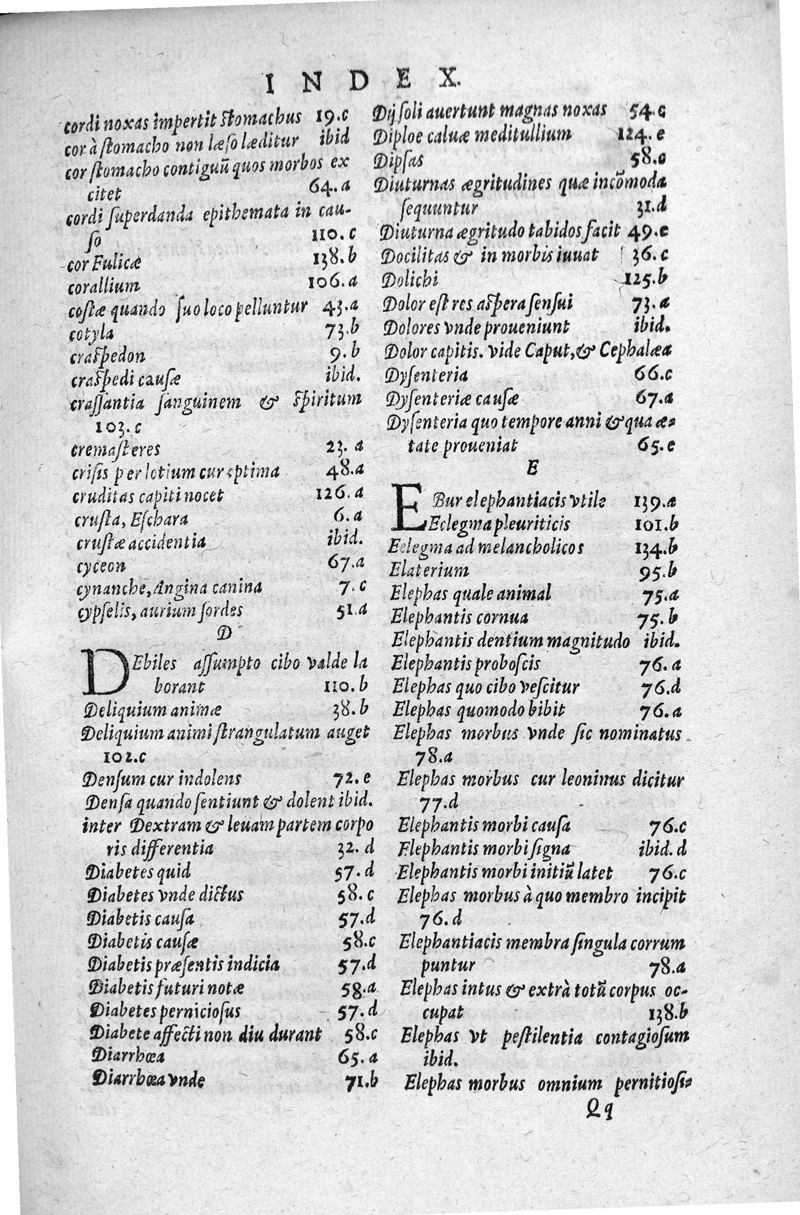 INDEX.
cordi noxas impertit stomachus 19.c
cor à stomacho non læso læditur ibid
cor stomacho contiguũ quos morbos ex
citet 64.a
cordi superdanda epithemata in cau-
so 110.c
cor Fulicæ 138.b
corallium 106.a
costæ quando suo loco pelluntur 43.a
cotyla 73.b
craspedon 9.b
craspedi causæ ibid.
crassantia sanguinem & spiritum
103.c
cremasteres 23.a
crisis per lotium cur septima 48.a
cruditas capiti nocet 126.a
crusta, Eschara 6.a
crustæ accidentia ibid.
cyceon 67.a
cynanche, Angina canina 7.c
cypselis, aurium sordes 51.a
D
DEbiles assumpto cibo valde la
borant 110.b
Deliquium animæ 38.b
Deliquium animi strangulatum auget
102.c
Densum cur indolens 72.e
Densa quando sentiunt & dolent ibid.
inter Dextram & leuam partem corpo
ris differentia 32.d
Diabetes quid 57.d
Diabetes vnde dictus 58.c
Diabetis causa 57.d
Diabetis causæ 58.c
Diabetis præsentis indicia 57.d
Diabetis futuri notæ 58.a
Diabetes perniciosus 57.d
Diabete affecti non diu durant 58.c
Diarrhœa 65.a
Diarrhœa vnde 71.b
Dij soli auertunt magnas noxas 54.c
Diploe caluæ meditullium 124.e
Dipsas 58.c
Diuturnas ægritudines quæ incõmoda
sequuntur 31.d
Diuturna ægritudo tabidos facit 49.e
Docilitas & in morbis iuuat 36.c
Dolichi 125.b
Dolor est res aspera sensui 73.a
Dolores vnde proueniunt ibid.
Dolor capitis. vide Caput, & Cephalæa
Dysenteria 66.c
Dysenteriæ causæ 67.a
Dysenteria quo tempore anni & qua æ-
tate proueniat 65.e
E
EBur elephantiacis vtile 139.a
Eclegma pleuriticis 101.b
Eclegma ad melancholicos 134.b
Elaterium 95.b
Elephas quale animal 75.a
Elephantis cornua 75.b
Elephantis dentium magnitudo ibid.
Elephantis proboscis 76.a
Elephas quo cibo vescitur 76.d
Elephas quomodo bibit 76.a
Elephas morbus vnde sic nominatus
78.a
Elephas morbus cur leoninus dicitur
77.d
Elephantis morbi causa 76.c
Elephantis morbi signa ibid.d
Elephantis morbi initiũ latet 76.c
Elephas morbus à quo membro incipit
76.d
Elephantiacis membra singula corrum
puntur 78.a
Elephas intus & extrà totũ corpus oc-
cupat 138.b
Elephas vt pestilentia contagiosum
ibid.
Elephas morbus omnium pernitiosi-
Qq